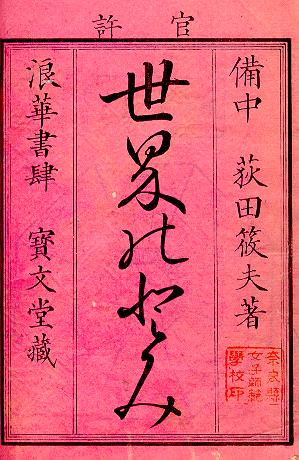 官許
備中 荻田筱夫著
世界
浪華書肆 寶文堂藏
奈良縣
女子師範
學校印